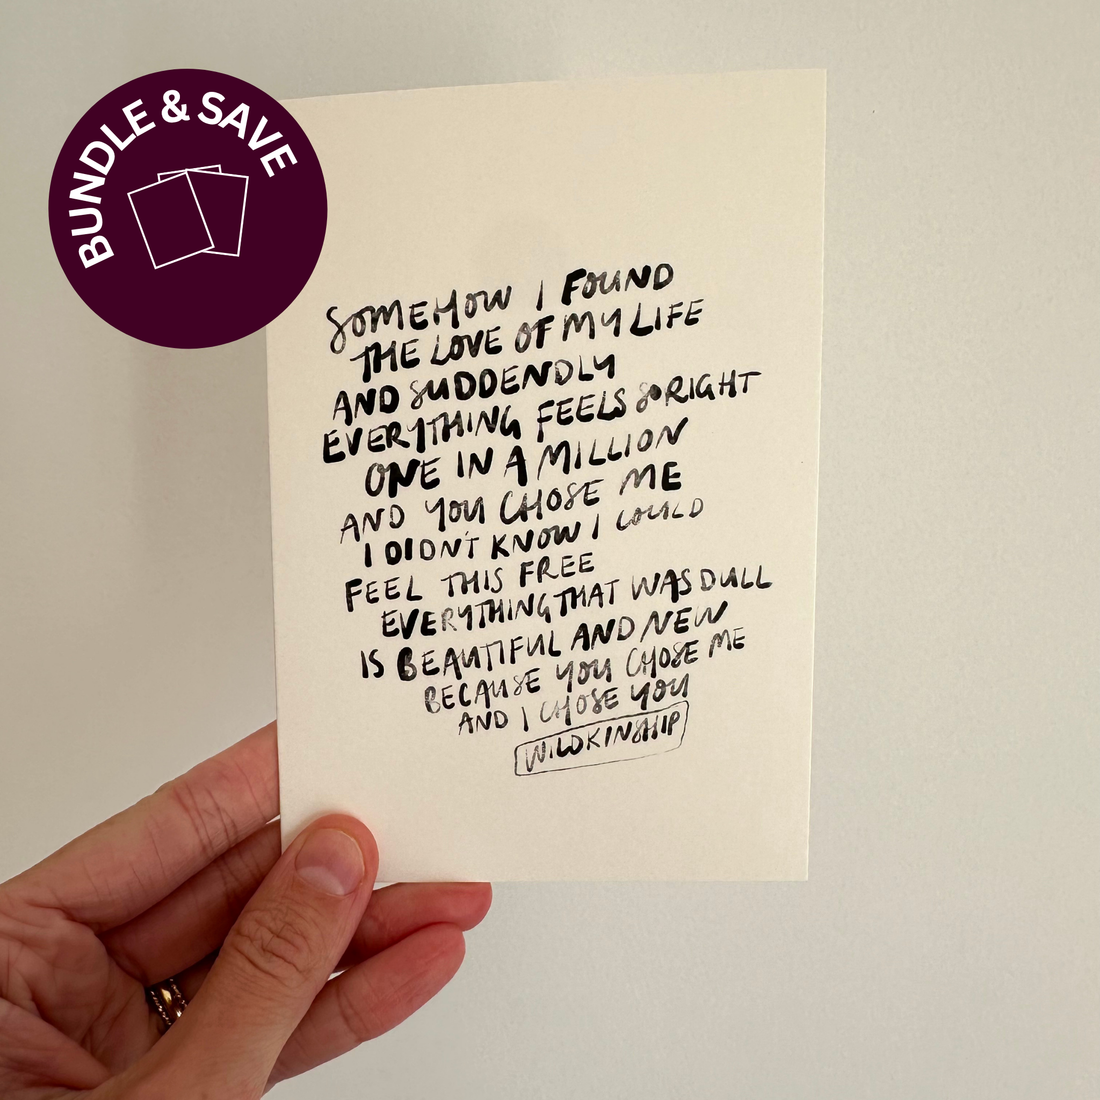 BUNDLE & SAVE
SOMEHOW I FOUND
THE LOVE OF MY LIFE
AND SUDDENDLY
EVERYTHING FEELS SO RIGHT
ONE IN A MILLION
AND YOU CHOSE ME
I DIDN'T KNOW I COULD
FEEL THIS FREE
EVERYTHING THAT WAS DULL
IS BEAUTIFUL AND NEW
BECAUSE YOU CHOSE ME
AND I CHOSE YOU
WILDKINSHIP